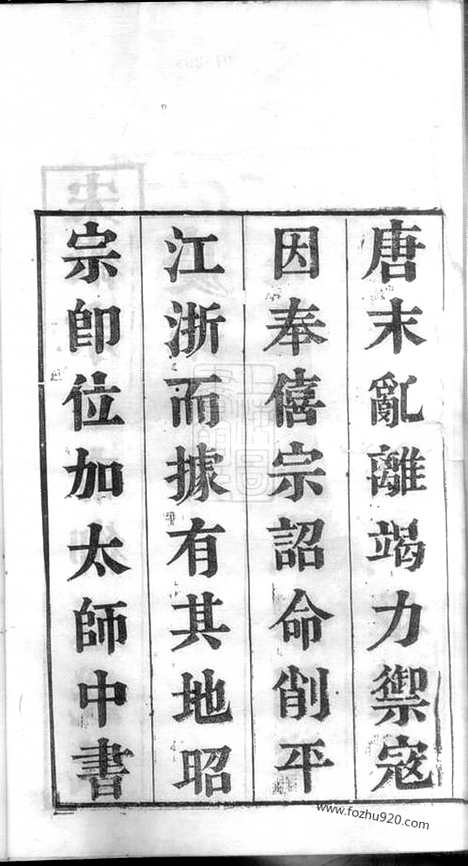 唐末亂離竭力禦寇
因奉僖宗詔命削平
江浙而據有其地昭
宗卽位加太師中書
www.fozhu920.com